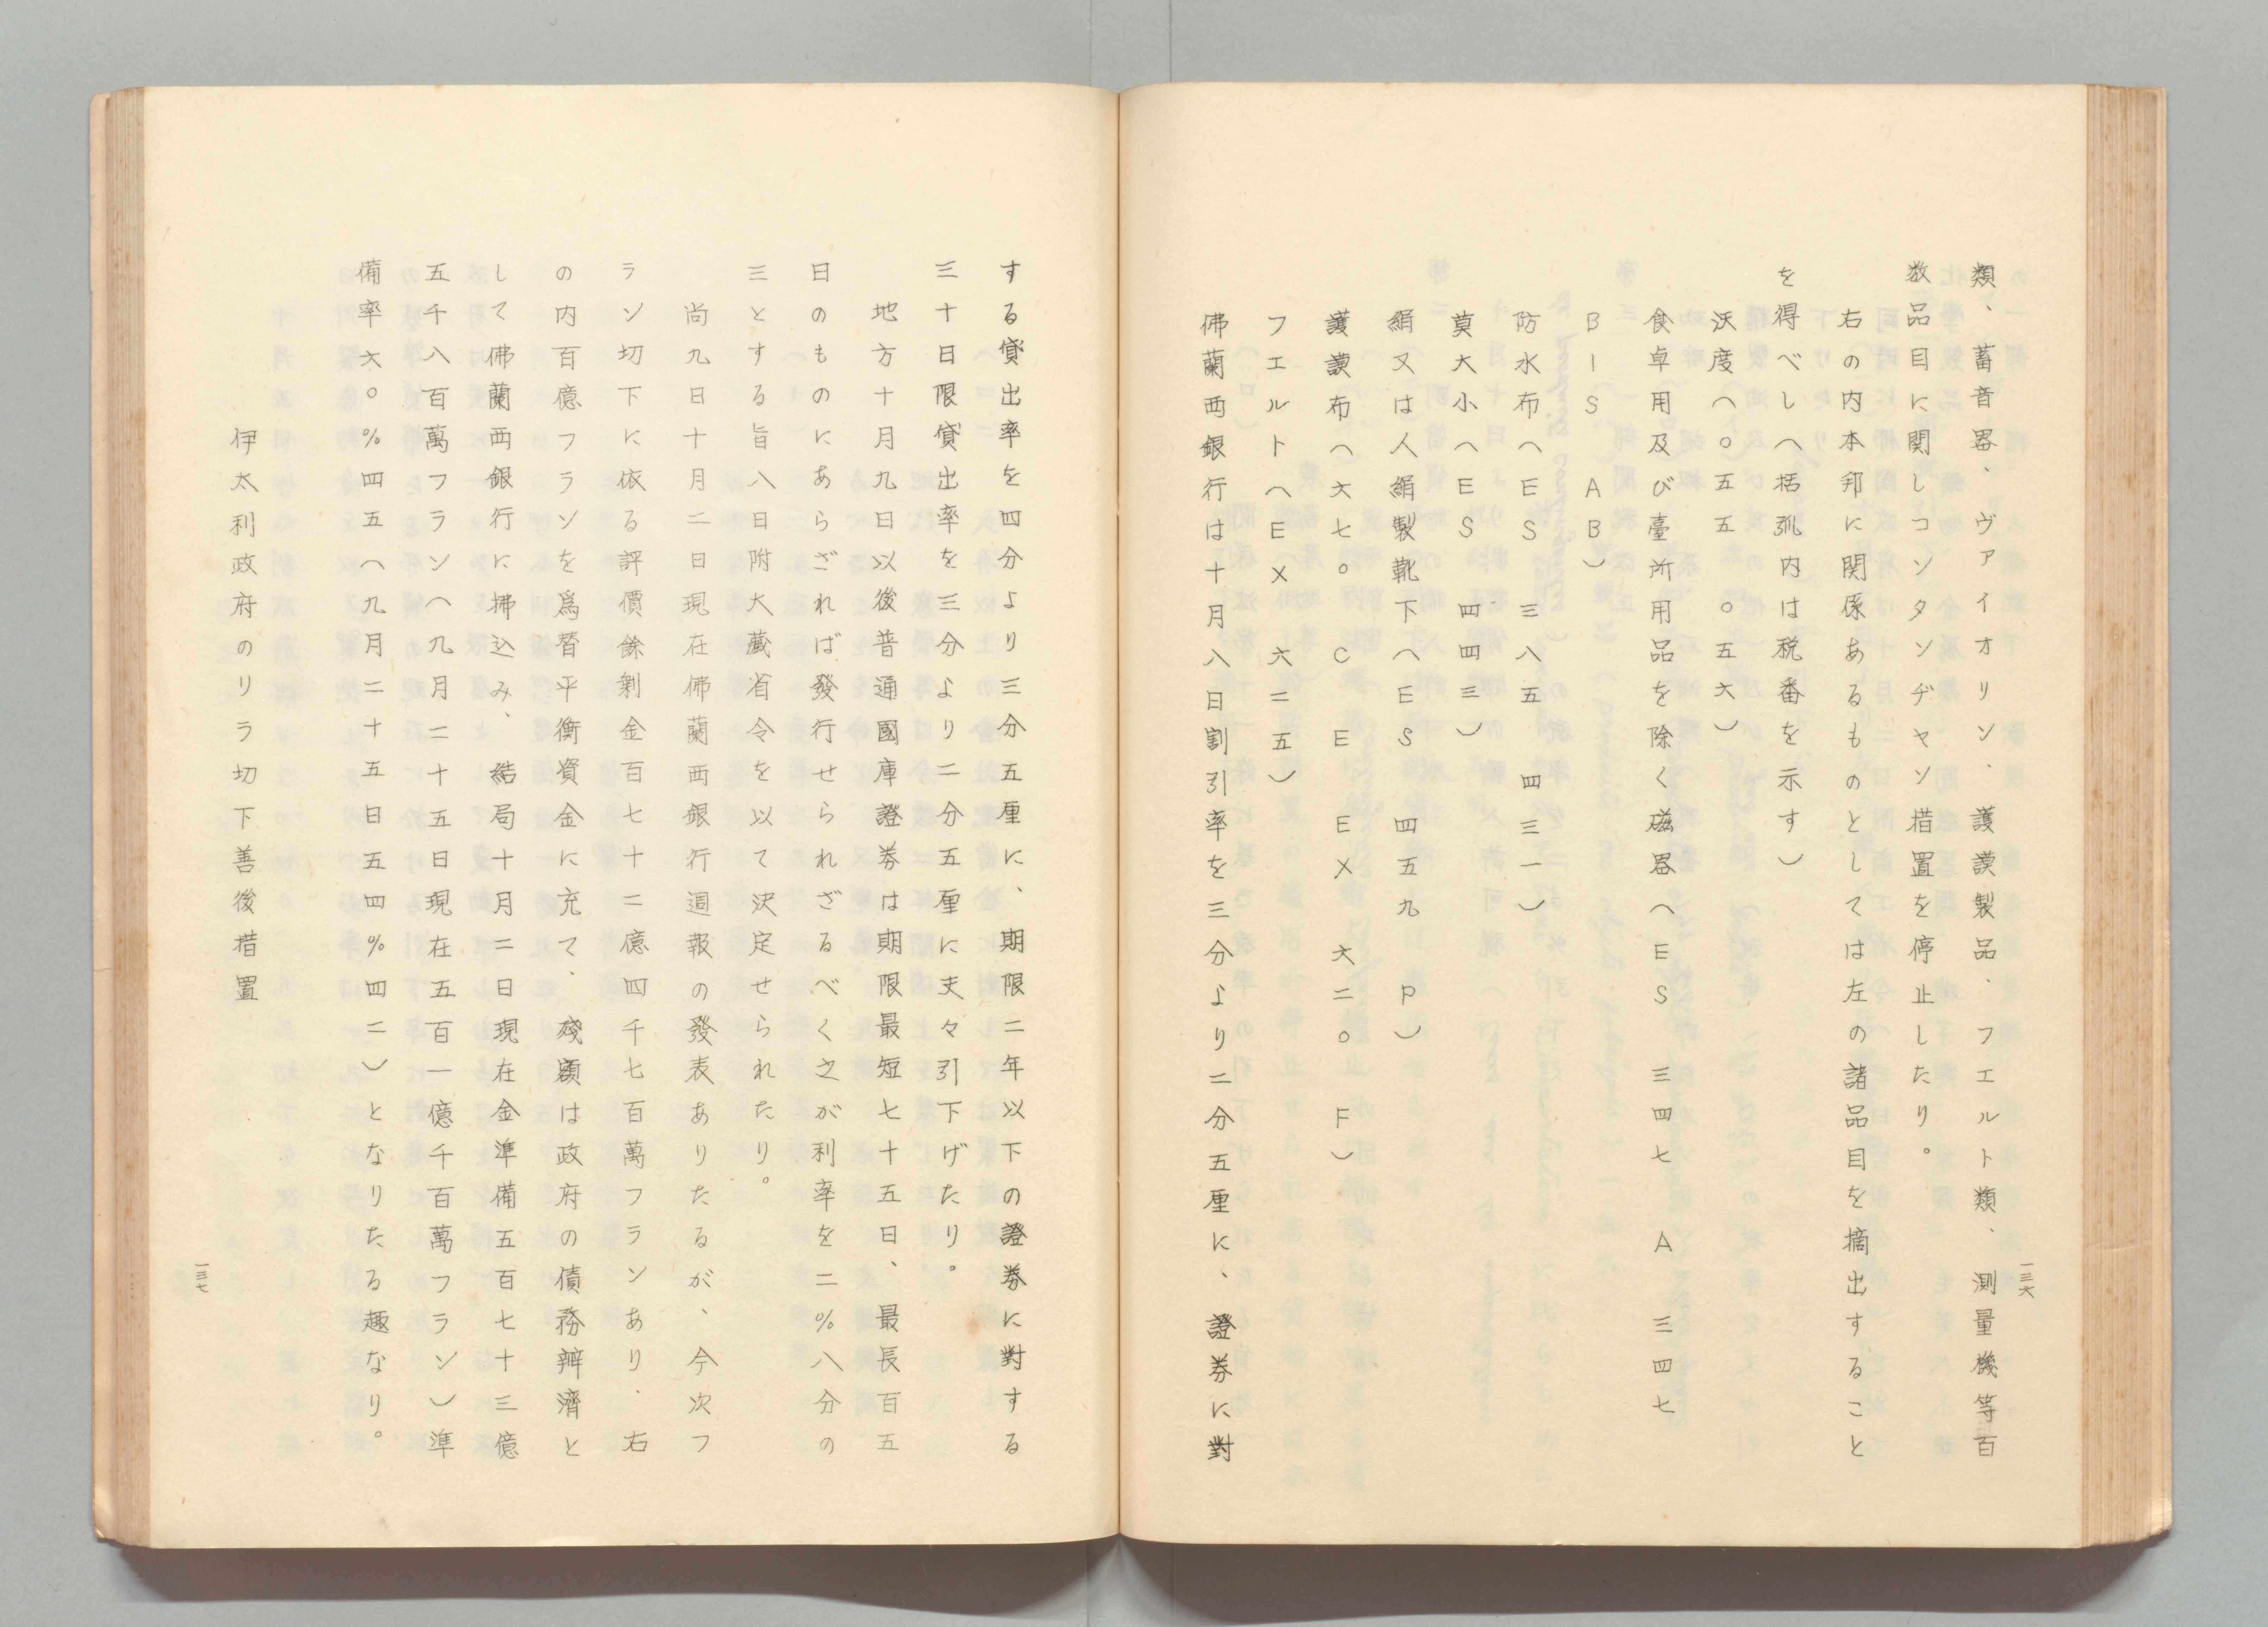 類、蓄音器、ヴァイオリン、護謨製品、フエルト類、測量機等百
数品目に関しコンタンヂヤン措置を停止したり。
右の内本邦に関係あるものとしては左の諸品目を摘出すること
を得べし（括弧内は税番を示す）
沃度（〇五五　〇五六）
食卓用及び臺所用品を除く磁器（ES　三四七　A　三四七
BIS　AB）
防水布（ES　三八五　四三一）
莫大小（ES　四四三）
絹又は人絹製靴下（ES　四五九　P）
護謨布（六七〇　C　E　EX　六二〇　F）
フエルト（EX　六二五）
佛蘭西銀行は十月八日割引率を三分より二分五厘に、證券に對
一三六
する貸出率を四分より三分五厘に、期限二年以下の證券に對する
三十日限貸出率を三分より二分五厘に夫々引下げたり。
地方十月九日以後普通國庫證券は期限最短七十五日、最長百五
日のものにあらざれば發行せられざるべく之が利率を二％八分の
三とする旨八日附大藏省令を以て決定せられたり。
尚九日十月二日現在佛蘭西銀行週報の發表ありたるが、今次フ
ラン切下に依る評價餘剰金百七十二億四千七百萬フランあり、右
の内百億フランを爲替平衡資金に充て、殘額は政府の債務辨濟と
して佛蘭西銀行に拂込み、結局十月二日現在金準備五百七十三億
五千八百萬フラン（九月二十五日現在五百一億千百萬フラン）準
備率六〇％四五（九月二十五日五四％四二）となりたる趣なり。
伊太利政府のリラ切下善後措置
一三七